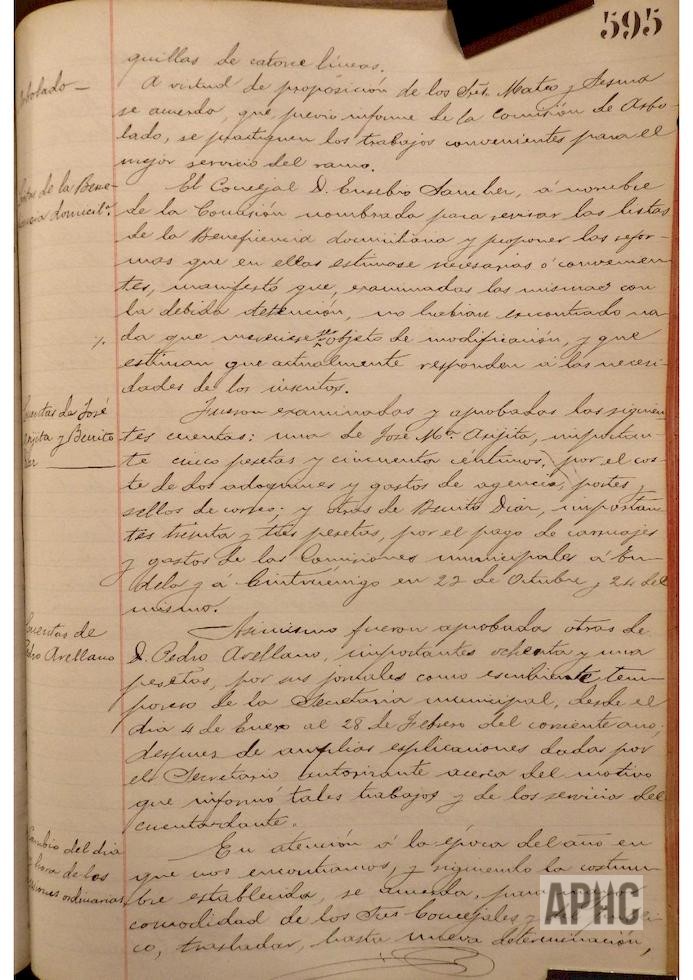 595
quillas de catorce líneas.
Arbolado —
A virtud de proposición de los Sres. Mateo y Sesma
se acuerda, que, previo informe de la Comisión de Arbo-
lado, se practiquen los trabajos convenientes para el
mejor servicio del ramo.
de la Bene-
domicila.
El Concejal D. Eusebio Sanchez, á nombre
de la Comisión nombrada para revisar las listas
de la Beneficencia domiciliaria y proponer las refor-
mas que en ellas estimase necesarias ó convenien-
tes, manifestó que, examinadas las mismas con
la debida detención, no habian encontrado na-
da que mereciese ser objeto de modificación, y que
estiman que actualmente responden á las necesi-
dades de los inscritos.
Cuentas de José
Arijita y Benito
Diaz
Fueron examinadas y aprobadas las siguien-
tes cuentas: una de José Ma. Arijita, importan-
te cinco pesetas y cincuenta céntimos, por el cos-
te de dos adoquines y gastos de agencia, portes,
sellos de correo; y otras de Benito Diaz, importan-
tes treinta y tres pesetas, por el pago de carruajes
y gastos de las Comisiones municipales á Tu-
dela y á Cintruénigo en 22 de Octubre y 24 del
mismo.
Cuentas de
Pedro Arellano
Asimismo fueron aprobadas otras de
D. Pedro Arellano, importantes ochenta y una
pesetas, por sus jornales como escribiente tem-
porero de la Secretaría municipal, desde el
dia 4 de Enero al 28 de Febrero del corriente año;
despues de amplias esplicaciones dadas por
el Secretario autorizante acerca del motivo
que informó tales trabajos y de los servicios del
cuentadante.
Cambio del dia
y hora de las
sesiones ordinarias
En atención á la época del año en
que nos encontramos, y siguiendo la costum-
bre establecida, se acuerda, para
comodidad de los Sres Concejales y
co, trasladar, hasta nueva determinación,
APHC